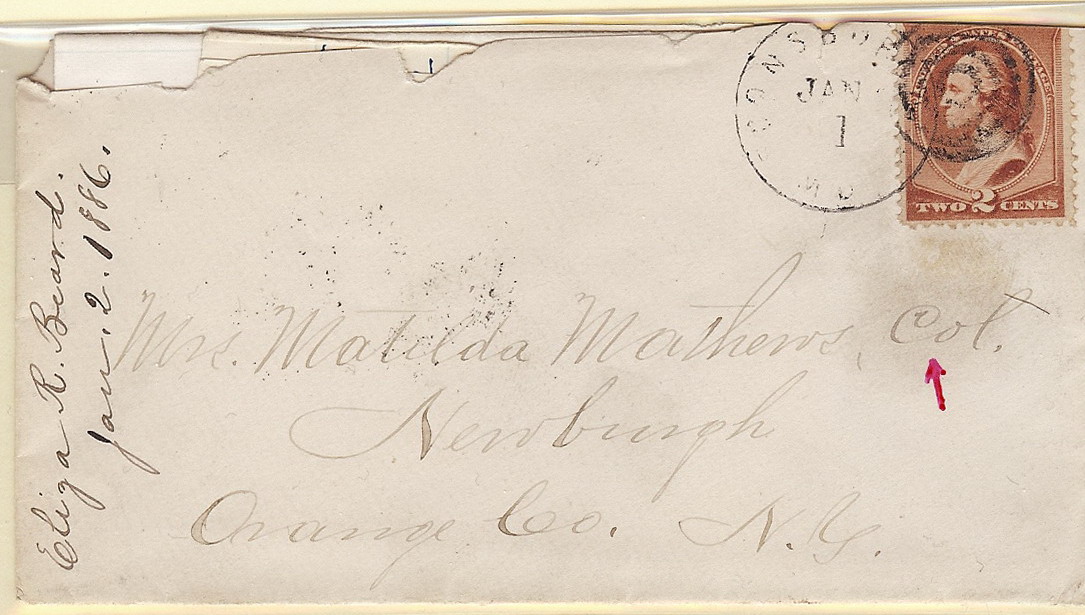 JAN
1
TWO 2 CENTS
Eliza R. Beard.
Jan. 2. 1886.
Mrs. Matilda Mathews, Col.
Newburgh
Orange Co. N.Y.